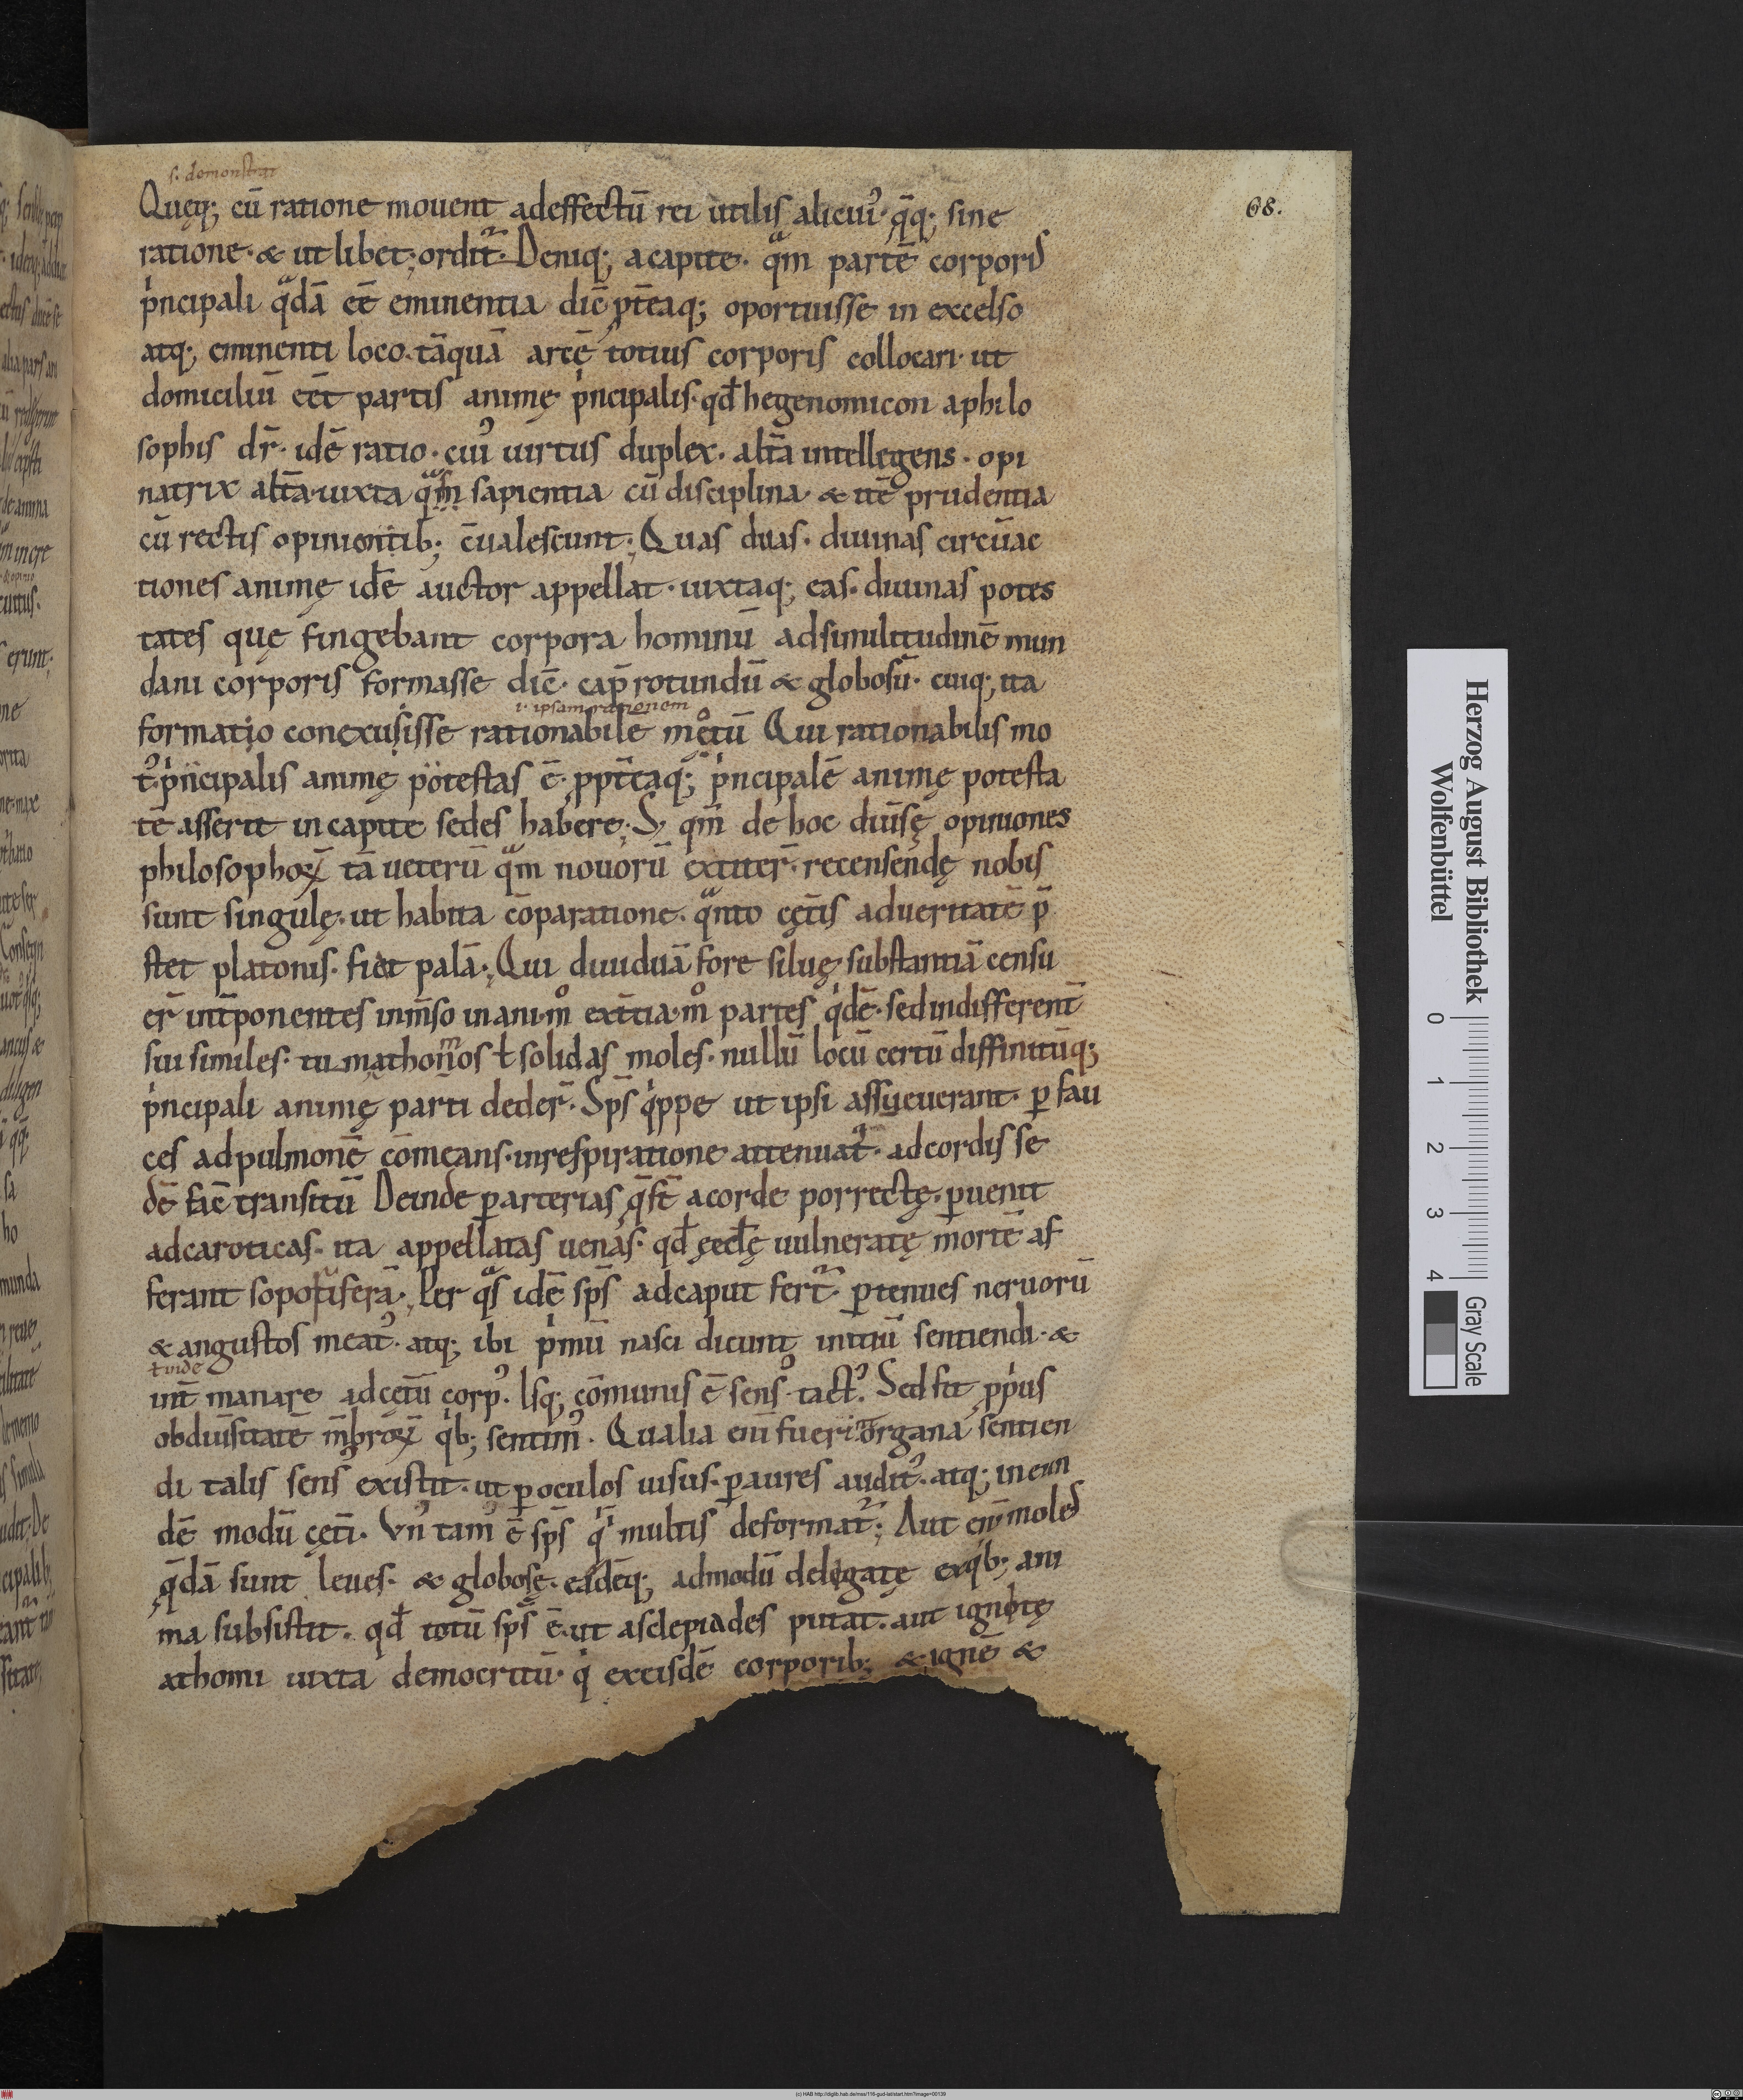 s. demonstrat
68.
Quęq; cū ratione mouent adeffectū rei utilis alicuiꝰ· q̄q; sine
ratione· & ut libet; ordit̄. Deniq; acapite· qͣm partē corporis
pͥncipali qͣdā eē eminentia dic̄ ꝓt̄eaq; oportuisse in excelso
atq; eminenti loco· tāquā arcē totius corporis collocari· ut
domiciliū eēt partis animę pͥncipalis· qđ hegenomicon aphilo
sophis dr̄· idē ratio· cuiꝰ uirtus duplex· alt̄a intellegens· opi
natrix alt̄a· iuxta qͣm sapientia cū disciplina· & itē prudentia
cū rectis opinionib; c̄ualescunt; Quas duas· diuinas circūac
tiones animę idē auctor appellat· iuxtaq; eas· diuinas potes
tates quę fingebant corpora hominū adsimilitudinē mun
dani corporis formasse dic̄· cap̄ rotundū & globosū· cuiq; ita
i· ipsam rationem
formatio conexuisse rationabile motū Qui rationabilis mo
tꝰ· pͥncipalis animę potestas ē· ꝓpt̄eaq; pͥncipalē animę potesta
tē asserit in capite sedes habere; S; qm̄ de hoc diūsę opiniones
philosophoꝝ tā ueterū qͣm nouorū extiter̄· recensendę nobis
sunt singulę· ut habita cōparatione· qͣnto cęt̄is adueritatē p̄
stet platonis· fiet palā; Qui diuiduā fore siluę substantiā censu
er̄ int̄ponentes inm̄so inani· mͦ ext̄tia· mͦ partes qͥdē· sed indifferent̄
sui similes· tū mathomos ł solidas moles· nullū locū certū diffinitūq;
pͥncipali animę parti deder̄· Sp̄s qͥppe ut ipsi assyeuerant· ꝑ fau
ces adpulmonē cōmeans· inrespiratione attenuat̄· adcordis se
dē fac̄ transitū Deinde ꝑ arterias q̄ st̄ acorde porrectę· ꝑuenit
adcaroticas· ita appellatas uenas· qđ ęedę uulneratę mortē af
ferant soporiferā; Per qͣs idē sp̄s adcaput fert̄· ꝑ tenues neruorū
& angustos meatꝰ· atq; ibi pͥmū nasci dicunt initiū sentiendi· &
ł uide
int̄ manare adcęt̄ū corpꝰ· Isq; cōmunis ē sensꝰ tactꝰ· Sed fit ꝓpͥus
obdiūsitatē m̄broꝝ qͥb; sentimꝰ· Qualia eni fuerint organa sentien
di talis sensꝰ existit· ut ꝑ oculos uisus· ꝑ aures auditꝰ· atq; in eun
dē modū cęt̄i· Vnꝰ tam̄ ē sp̄s qͥ multis deformat̄; Aut enī moles
q̄dā sunt leues· & globosę· eędēq; admodū delegatę exqͥb; ani
ma subsistit· qđ totū sp̄s ē· ut asclepiades putat· aut ignotę
athomi iuxta democritū· qͥ exeisdē corporib; & ignē &
Herzog August Bibliothek
Wolfenbüttel
0 1 2 3 4
Gray Scale
(c) HAB http://diglib.hab.de/mss/116-gud-lat/start.htm?image=00139